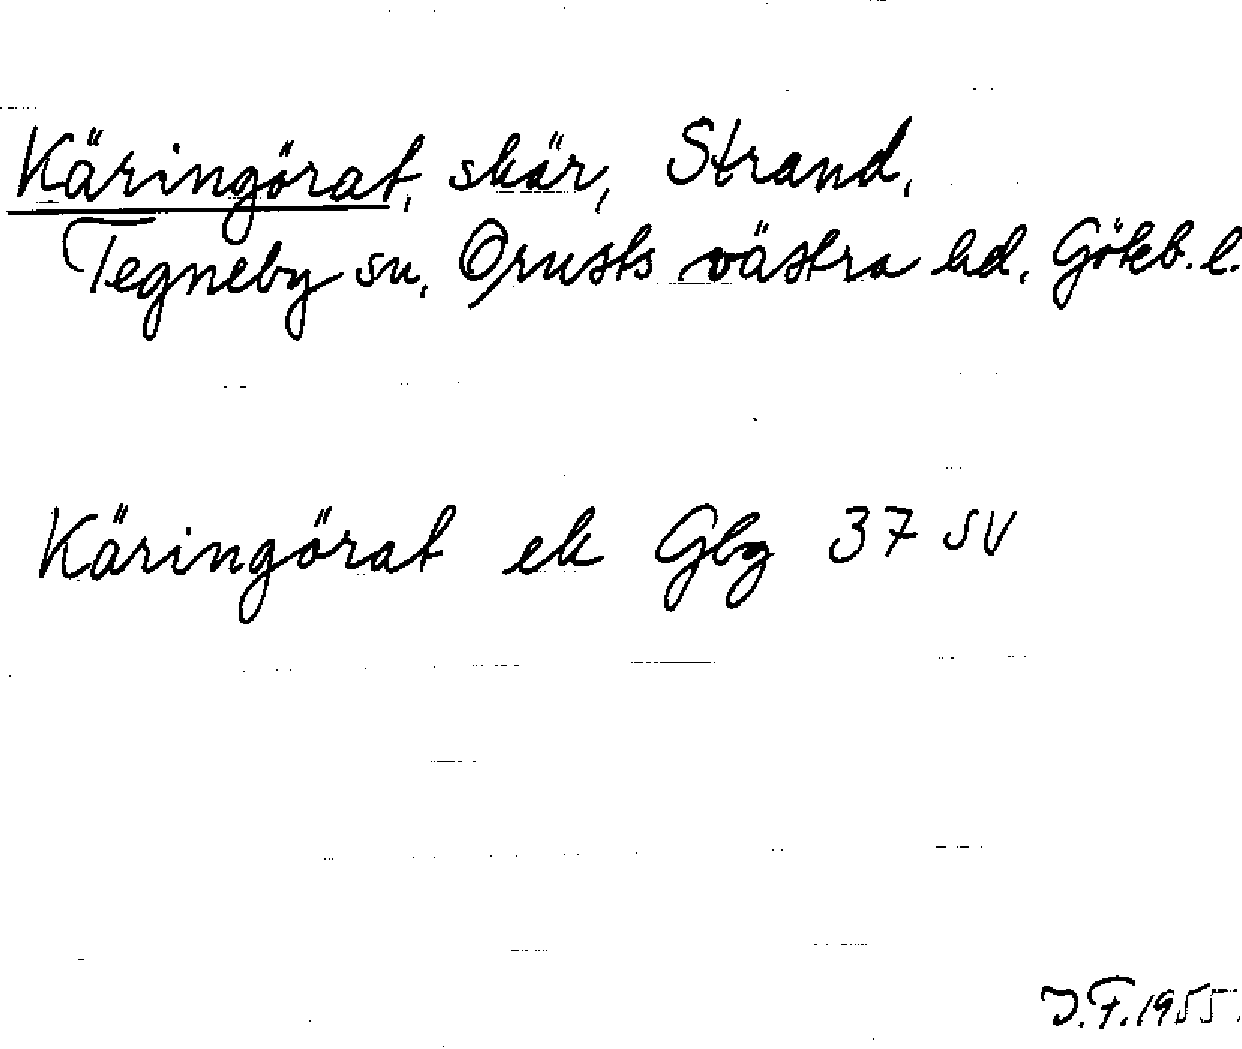 Käringörat, skär, Strand,
Tegneby sn, Orusts västra hd, Göteb. l.
Käringörat ek Gbg 37 SV
J.F. 1955.